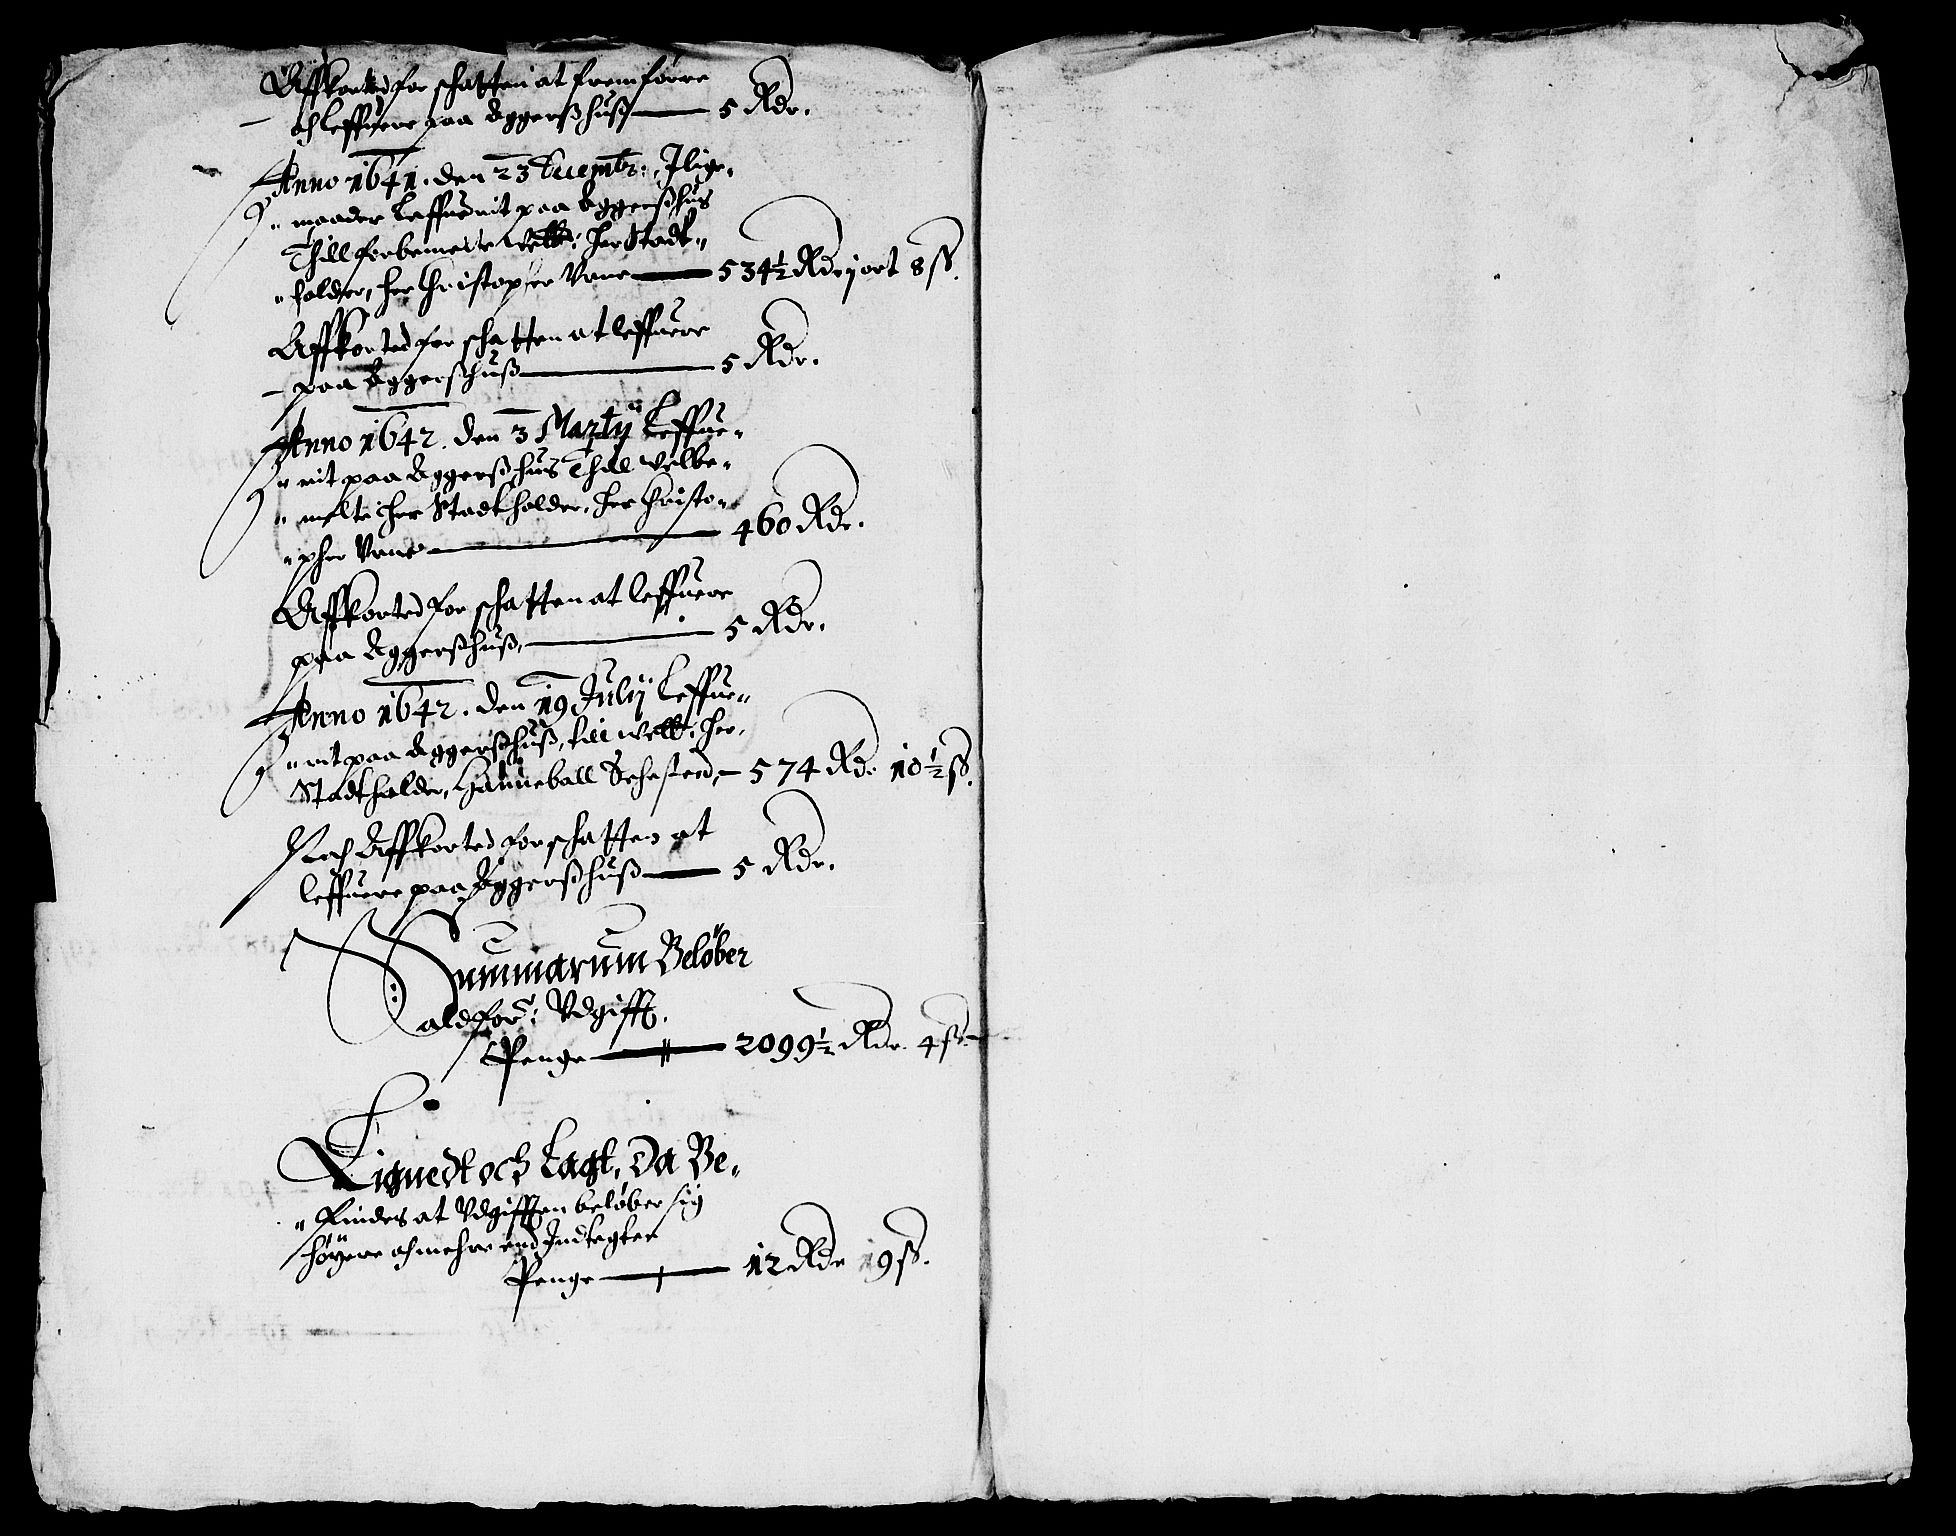 Affkorted for schatten at fremførre
och leffuere paa Aggerßhuß 5 Rdr.
Anno 1641. den 23 Decembr: Ilige„
„ maader Leffuerit paa Aggerßhus
Thill forbemelte Welb: Her Stadt„
„ holder, Her Christopfer Vrne 534½ Rdr j ort 8 ß.
Affkorted for schatten at leffuere
paa Aggerßhuß 5 Rdr.
Anno 1642. den 3 Martij Leffue„
„ rit paa Aggerßhus Thill velbe„
„ melte Her Stadtholder, Her Christo„
„ pher Vrne 460 Rdr.
Affkorted for schatten at leffuere
paa Aggerßhuß, 5 Rdr.
Anno 1642. den 19 Julij Leffue„
„ rit paa Aggerßhuß, till welb: Her,
Stadtholder, Hanneball Sehested, 574 Rdr 10½ ß.
Noch Affkorted for schatten at
leffuere paa Aggerßhuß 5 Rdr.
Summarum Beløber
ald for: Vdgifft.
Penge 2099½ Rdr. 4 ß.
Lignedt och Lagt, Da Be„
„ findes at Vdgifften beløber sig
høyere och mehre end Indtegten
Penge 12 Rdr 19 ß.